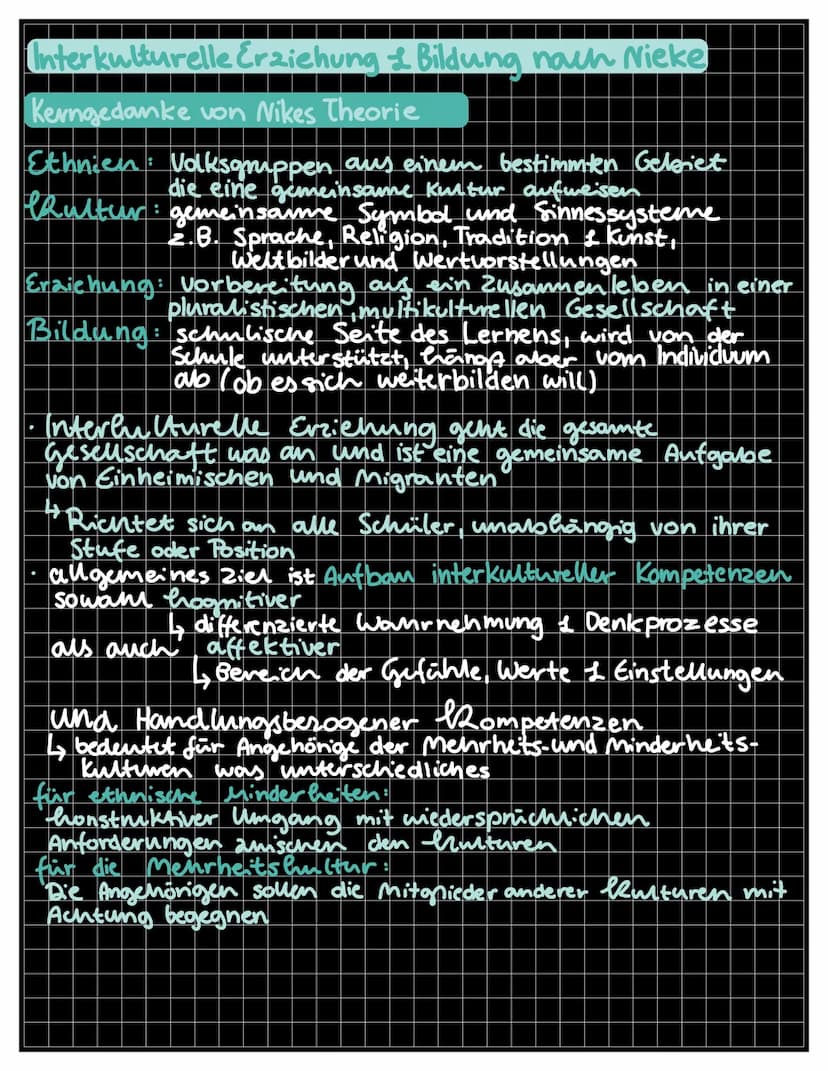 Interkulturelle Erziehung & Bildung nach Nieke
Kerngedanke von Nikes Theorie
Ethnien: Volksgruppen aus einem bestimmten Gebiet
die eine gemeinsame Kultur aufweisen
Kultur: gemeinsame Symbol und Sinnessysteme
z.B. Sprache, Religion, Tradition & Kunst,
Weltbilder und Wertvorstellungen
Erziehung: Vorbereitung auf ein Zusammenleben in einer
pluralistischen, multikulturellen Gesellschaft
Bildung: schulische Seite des Lernens, wird von der
Schule unterstützt, hängt aber vom Individuum
ab (ob es sich weiterbilden will)
· Interkulturelle Erziehung geht die gesamte
Gesellschaft was an und ist eine gemeinsame Aufgabe
von Einheimischen und Migranten
↳ Richtet sich an alle Schüler, unabhängig von ihrer
Stufe oder Position
· allgemeines Ziel ist Aufbau interkultureller Kompetenzen
sowohl kognitiver
↳ differenzierte Wahrnehmung & Denkprozesse
als auch affektiver
↳ Bereich der Gefühle, Werte & Einstellungen
und Handlungsbezogener Kompetenzen
↳ bedeutet für Angehörige der Mehrheits- und Minderheits-
kulturen was unterschiedliches
für ethnische Minderheiten:
konstruktiver Umgang mit wiedersprüchlichen
Anforderungen zwischen den Kulturen
für die Mehrheitskultur:
Die Angehörigen sollen die Mitglieder anderer Kulturen mit
Achtung begegnen